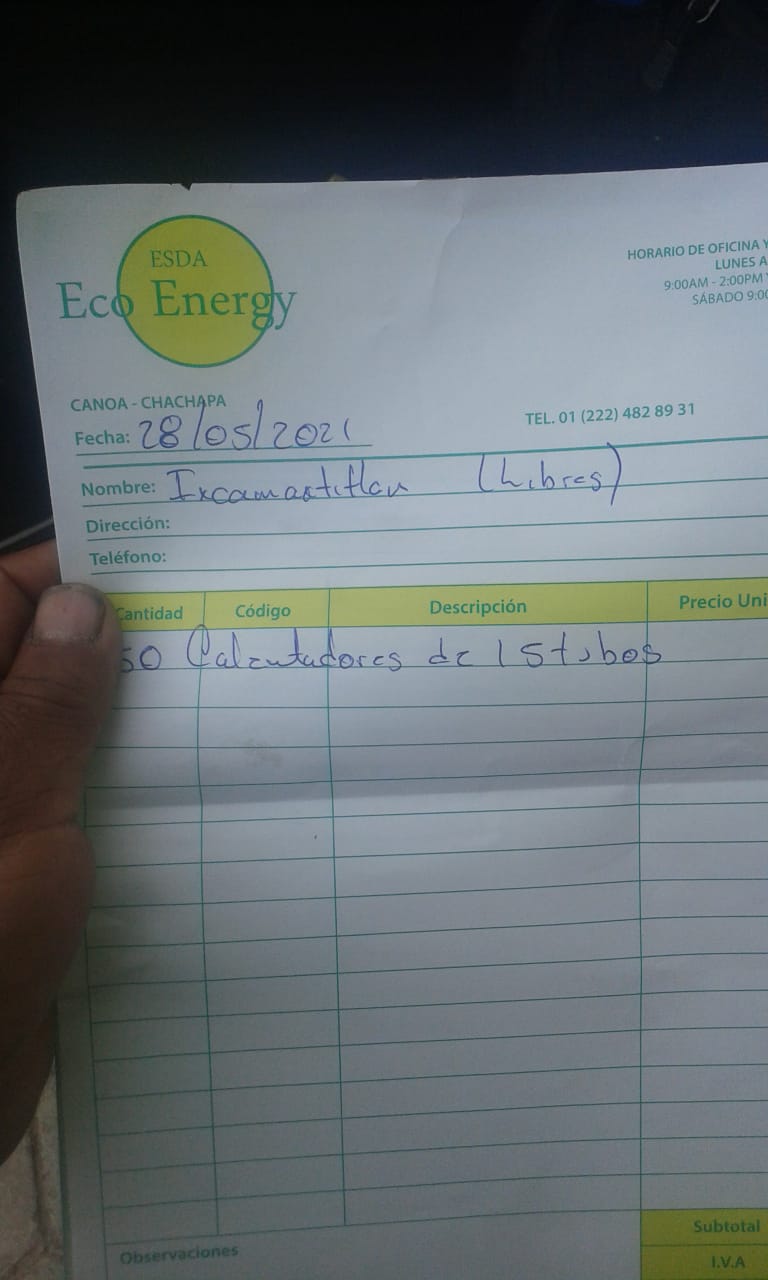 ESDA
Eco Energy
HORARIO DE OFICINA Y
LUNES A
9:00AM - 2:00PM Y
SÁBADO 9:00
CANOA - CHACHAPA
TEL. 01 (222) 482 89 31
Fecha: 28/05/2021
Nombre: Ixcamaxtitlan (Libres)
Dirección:
Teléfono:
Cantidad Código Descripción Precio Uni
50 Calentadores de 15 tubos
Observaciones
Subtotal
I.V.A